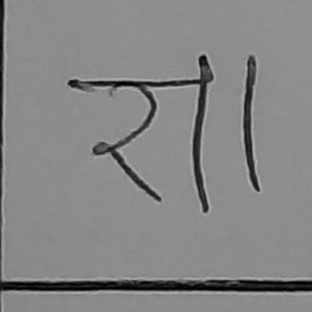 रा।